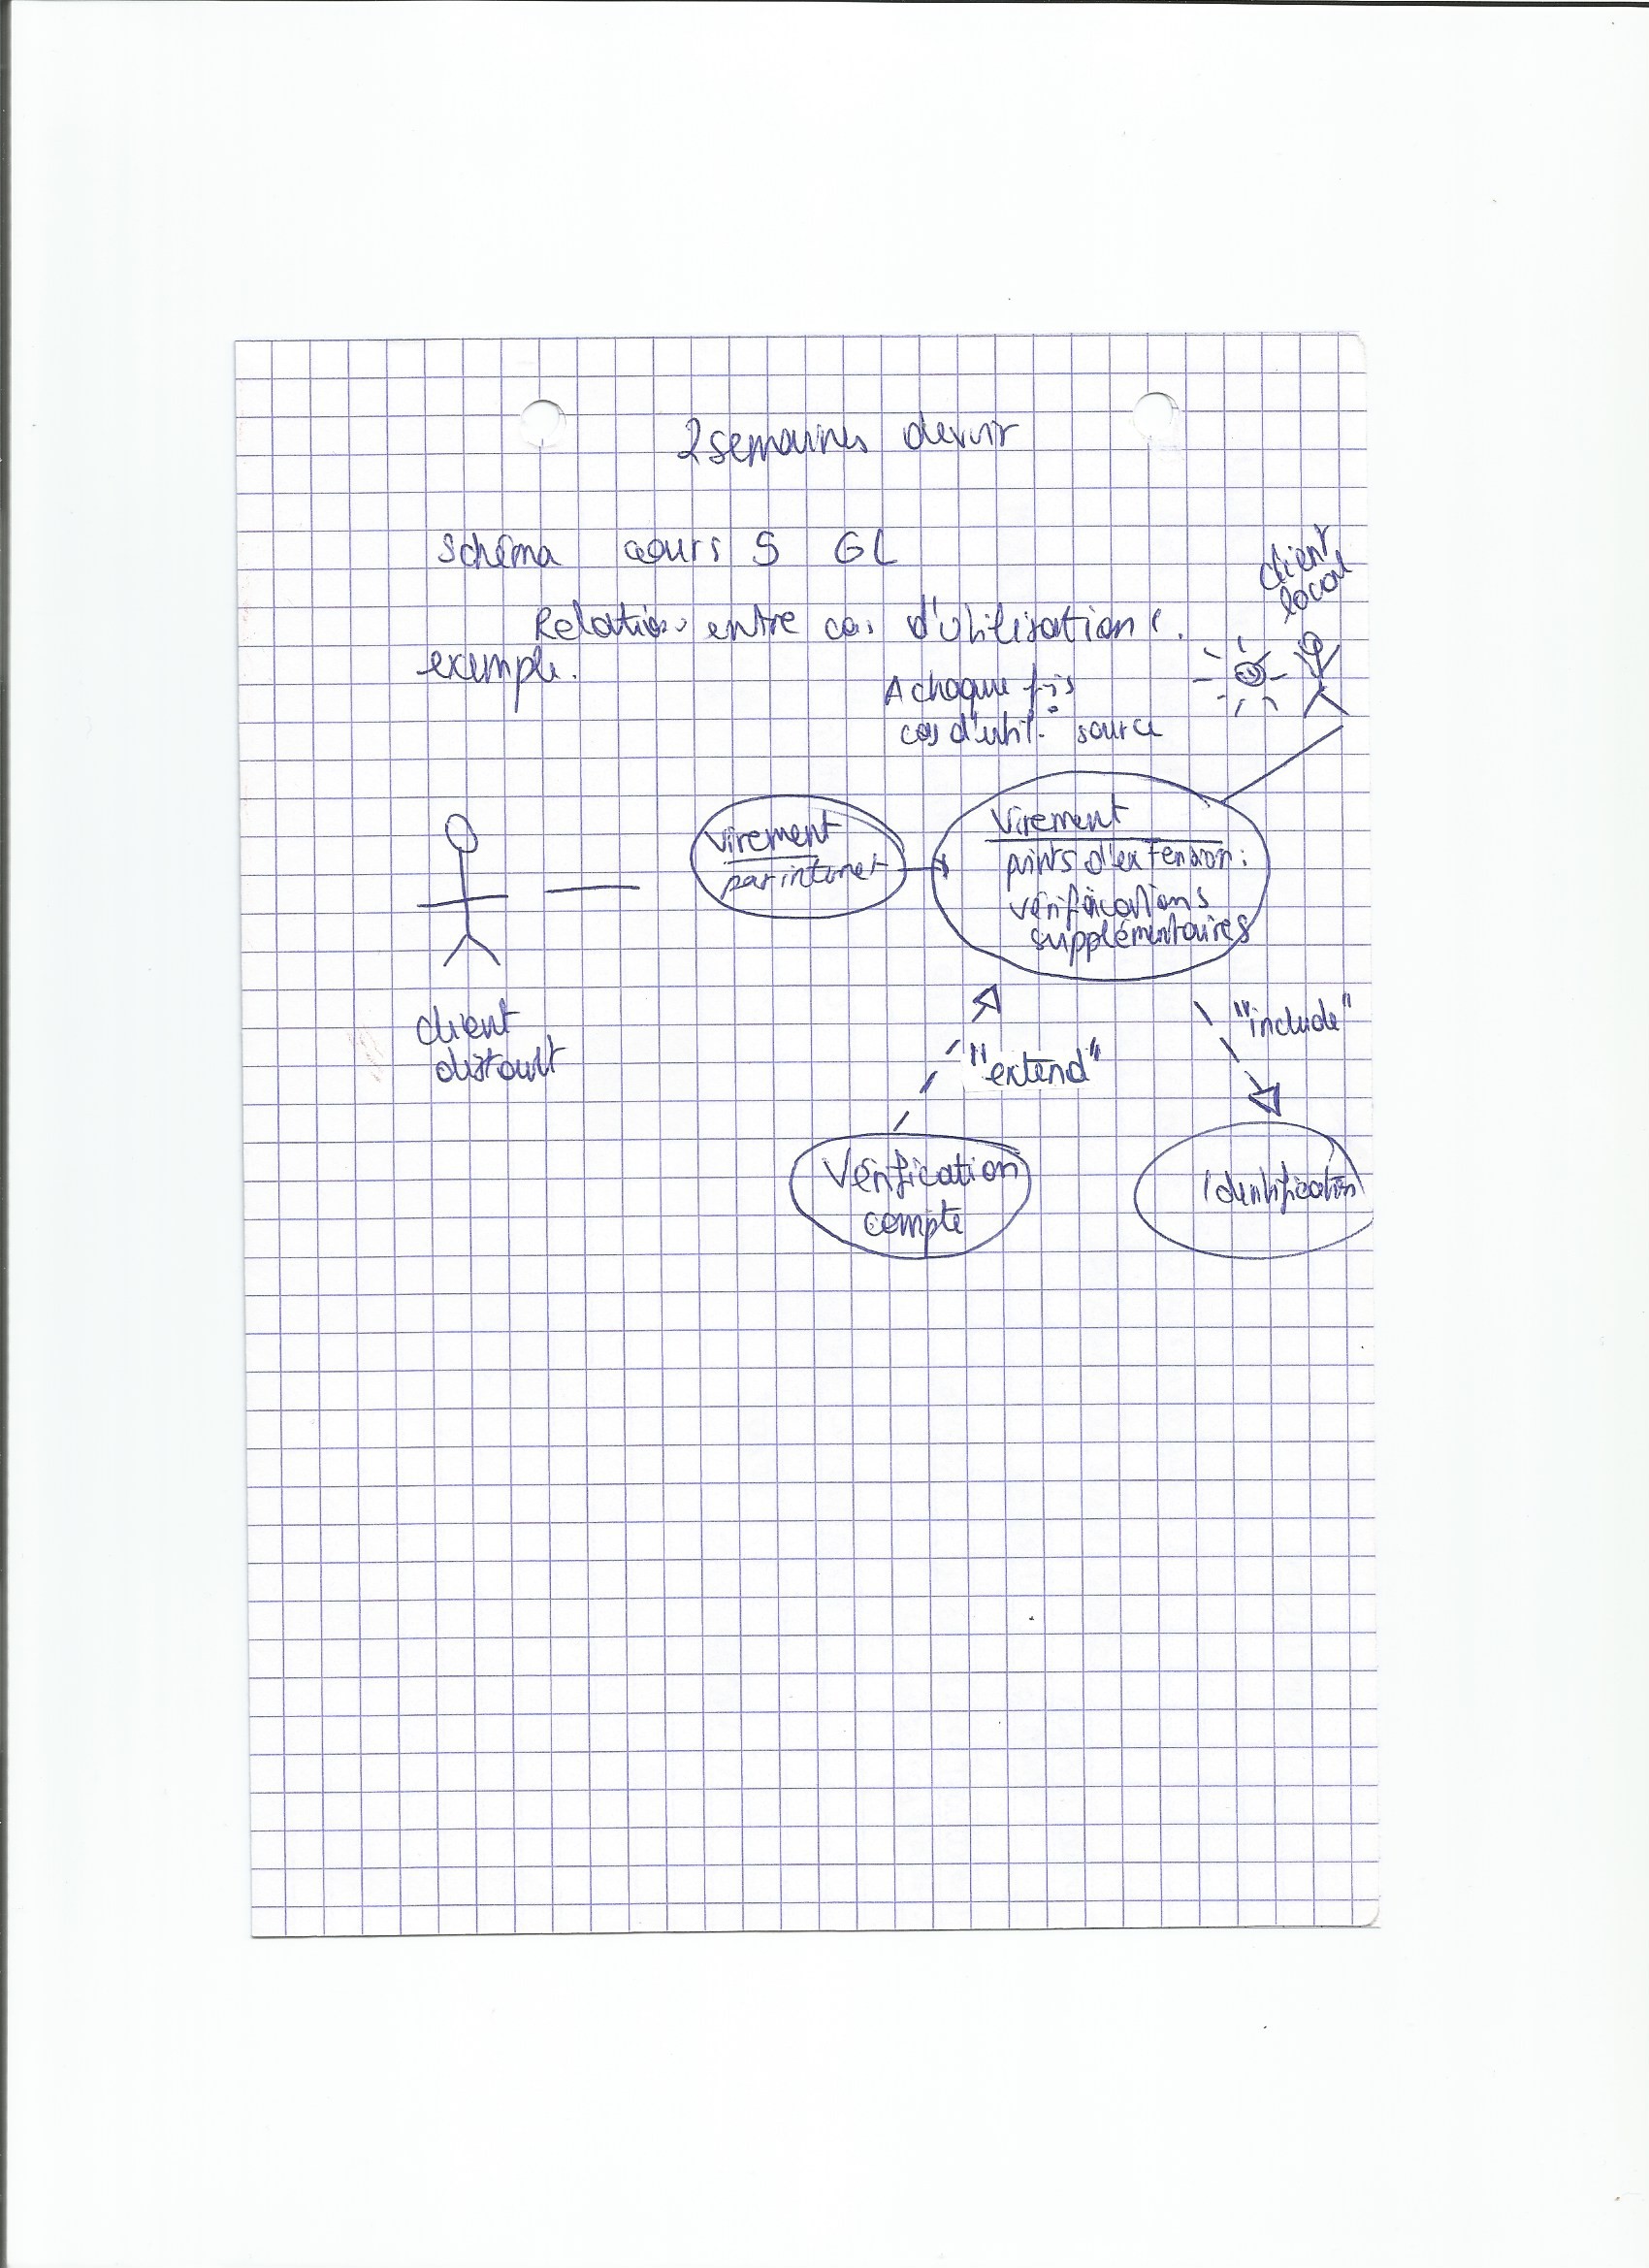 2 semaines devoir
Schéma cours 5 GL
Relations entre cas d'utilisation
exemple.
client
local
A chaque fois
cas d'util. source
Virement
par internet
Virement
points d'extension :
vérifications
supplémentaires
client
distant
"include"
"extend"
Vérification
compte
Identification